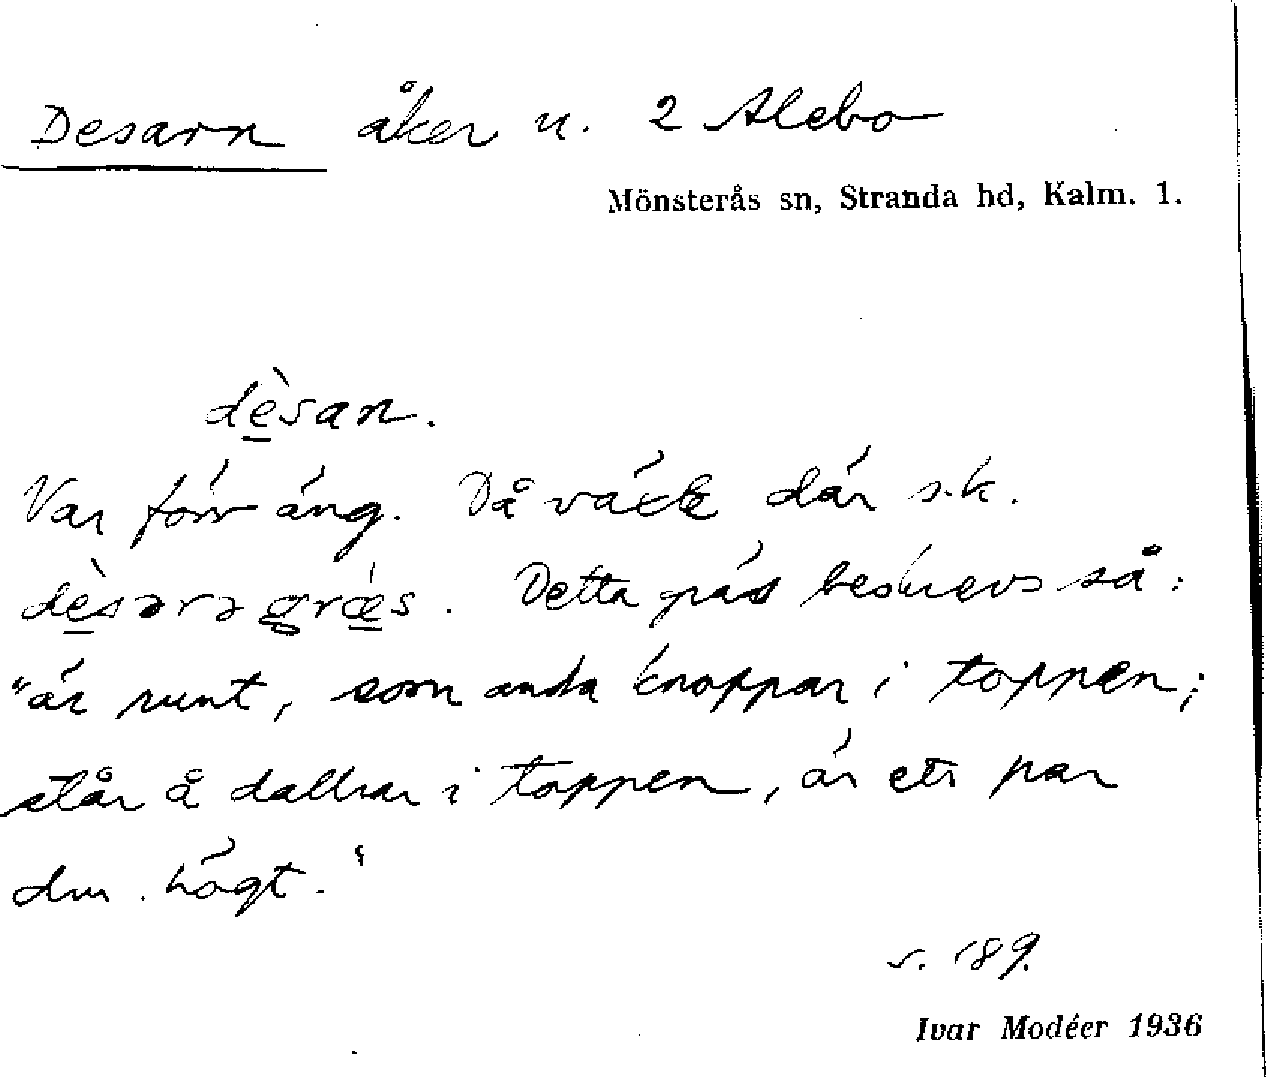 Desarn åker u. 2 Alebo
Mönsterås sn, Stranda hd, Kalm. l.
dèsan.
Var förr äng. Då växte där s.k.
dèsərə græ̀s. Detta gräs beskrevs så:
"är runt, som andra knoppar i toppen;
står å dallrar i toppen, är ett par
dm. högt."
s. 189.
Ivar Modéer 1936